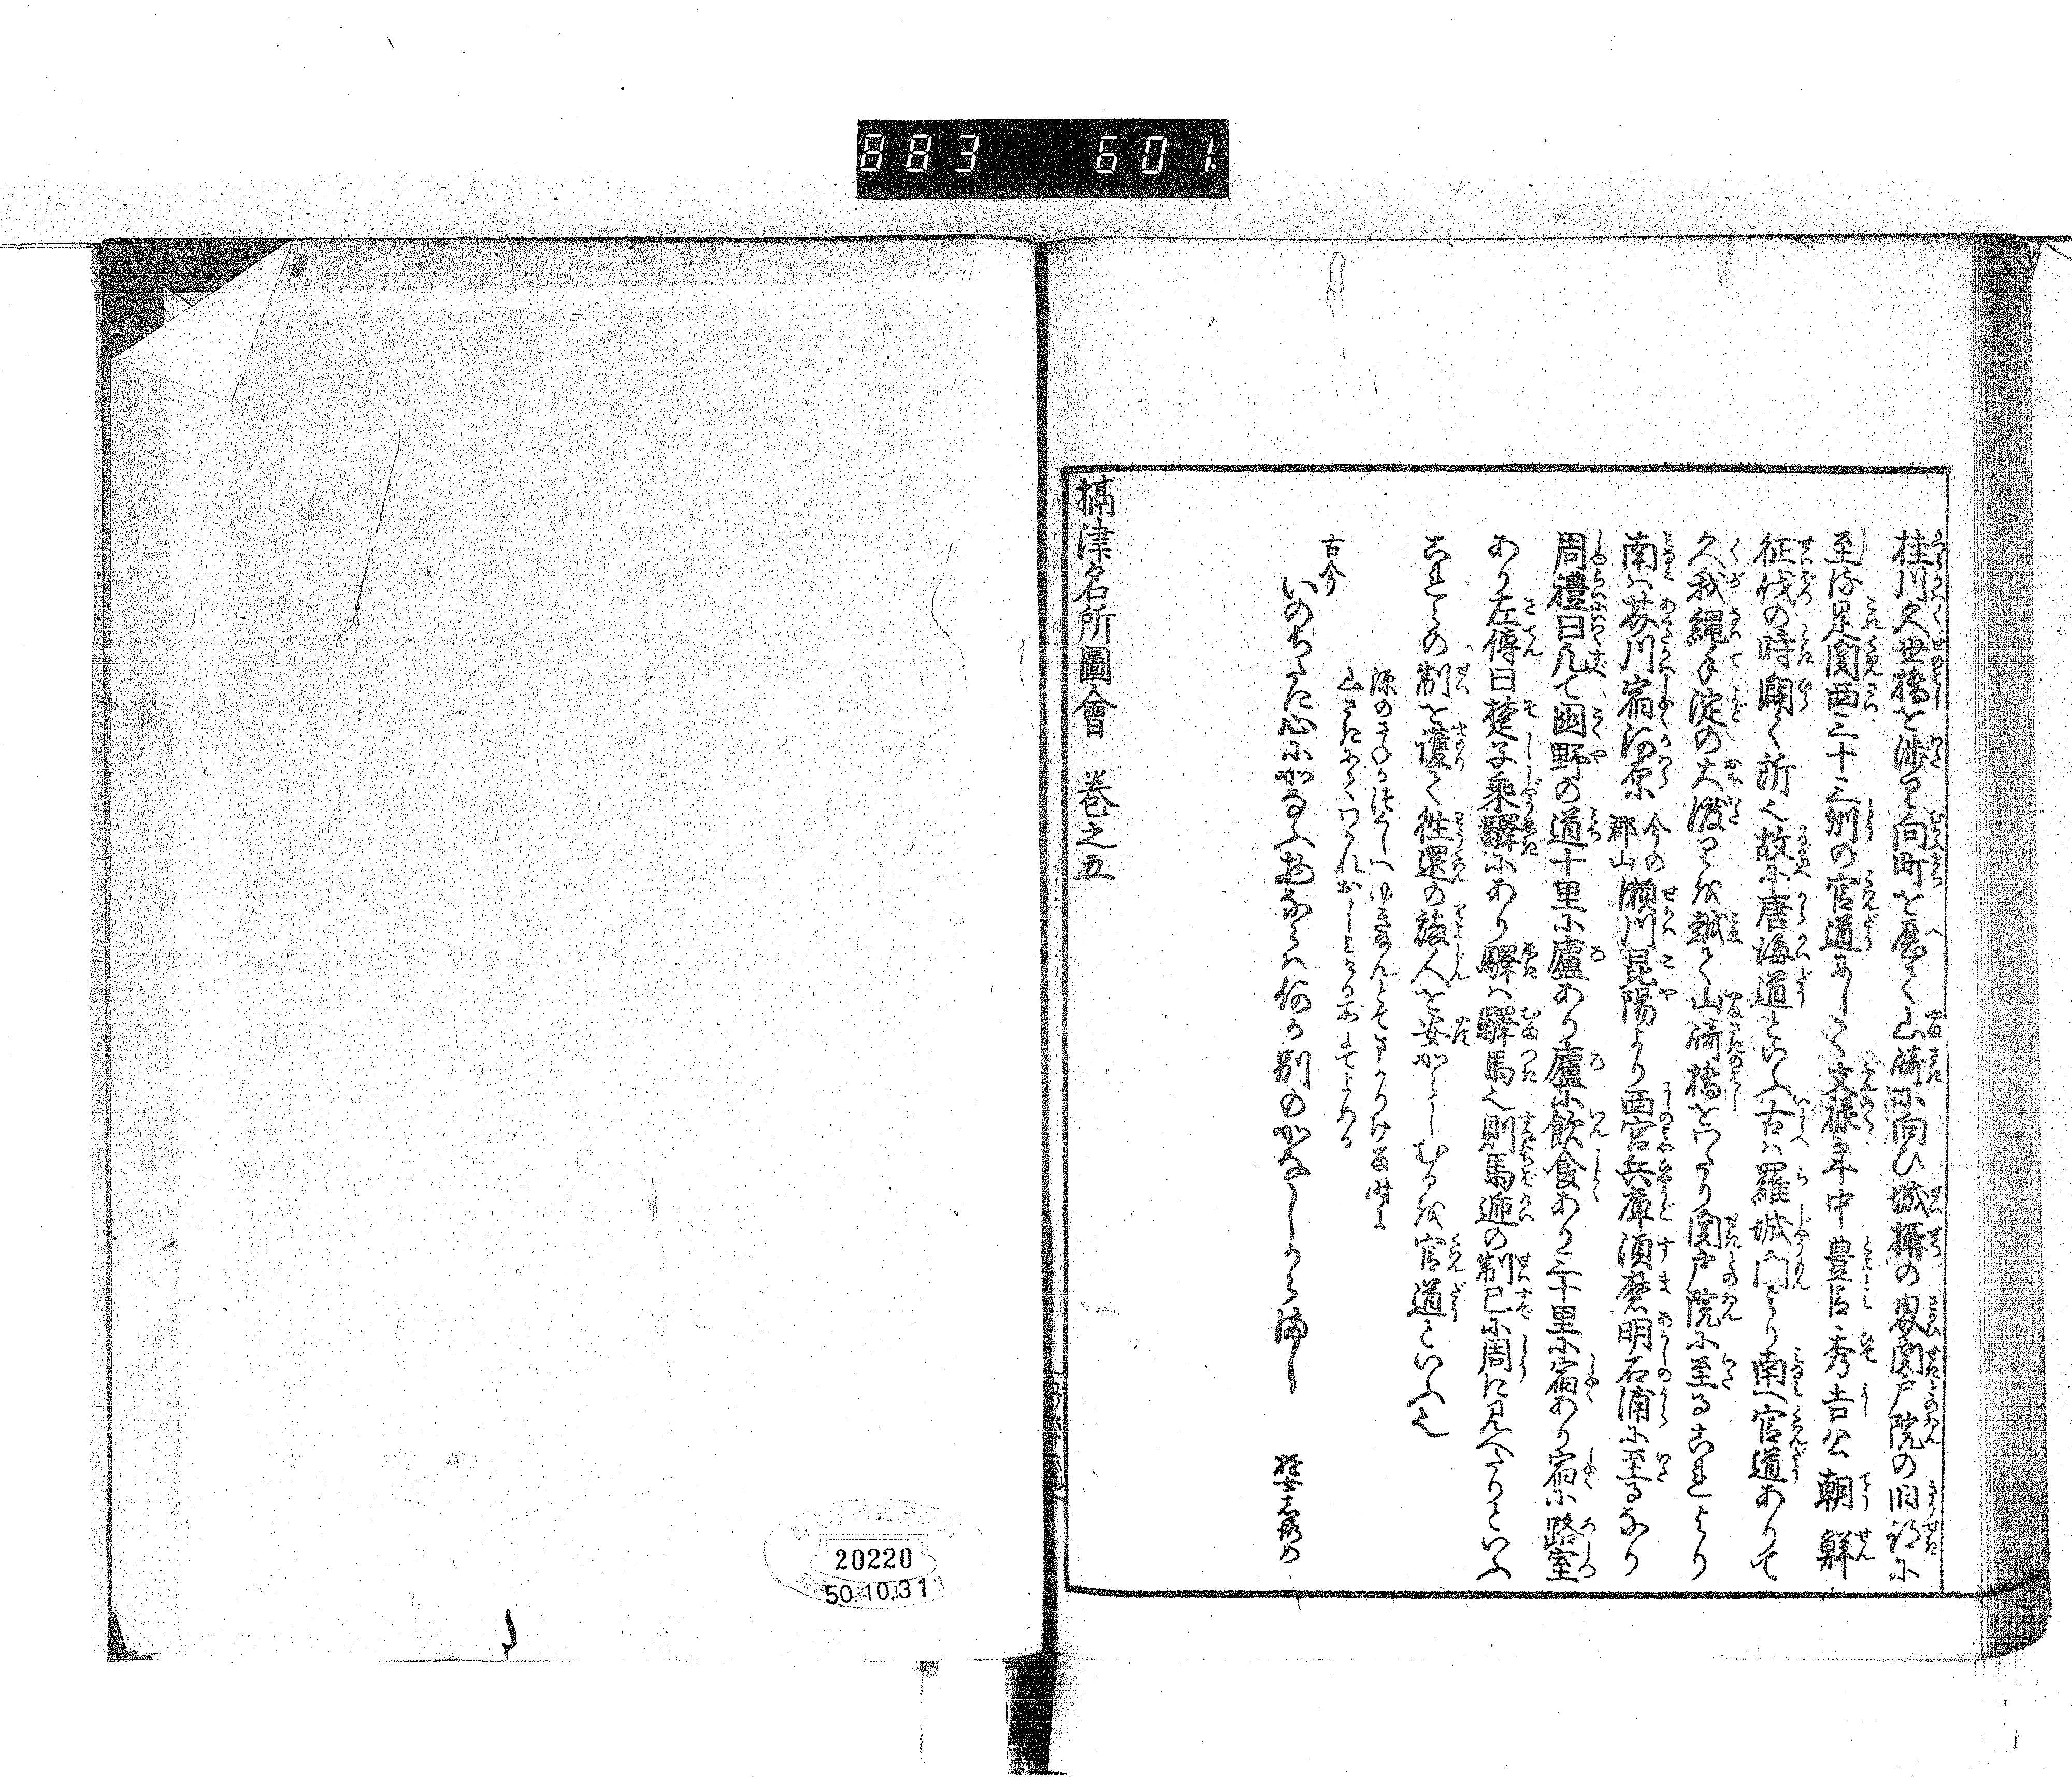 883 601
桂川久世橋を渉りて向町を歴て山崎に向ひ城摂の界関戸院の旧跡に
至る是関西三十三州の官道にして文禄年中豊臣秀吉公朝鮮
征伐の時開く所也故に唐海道といふ古は羅城門より南へ官道ありて
久我縄手淀の大渡りを越て山崎橋をわたり関戸院に至るこれより
南は芥川宿河原今の郡山瀬川昆陽より西宮兵庫須磨明石浦に至るなり
周禮曰凡て国野の道十里に廬あり廬に飲食あり三十里に宿あり宿に路室
あり左傳曰楚子乗驛にあり驛は驛馬也則馬逓の制已に周に見へたりといふ
これらの制を護て往還の旅人を安からしむるを官道といふ也
源のさねがつくしへゆきあみんとてまかりける時に
山さきにてわかれおしみける所にてよめる
古今
いのちだに心にかなふ物ならは何か別のかなしからまし
摂津名所圖會 巻之五
20220
50.10.31